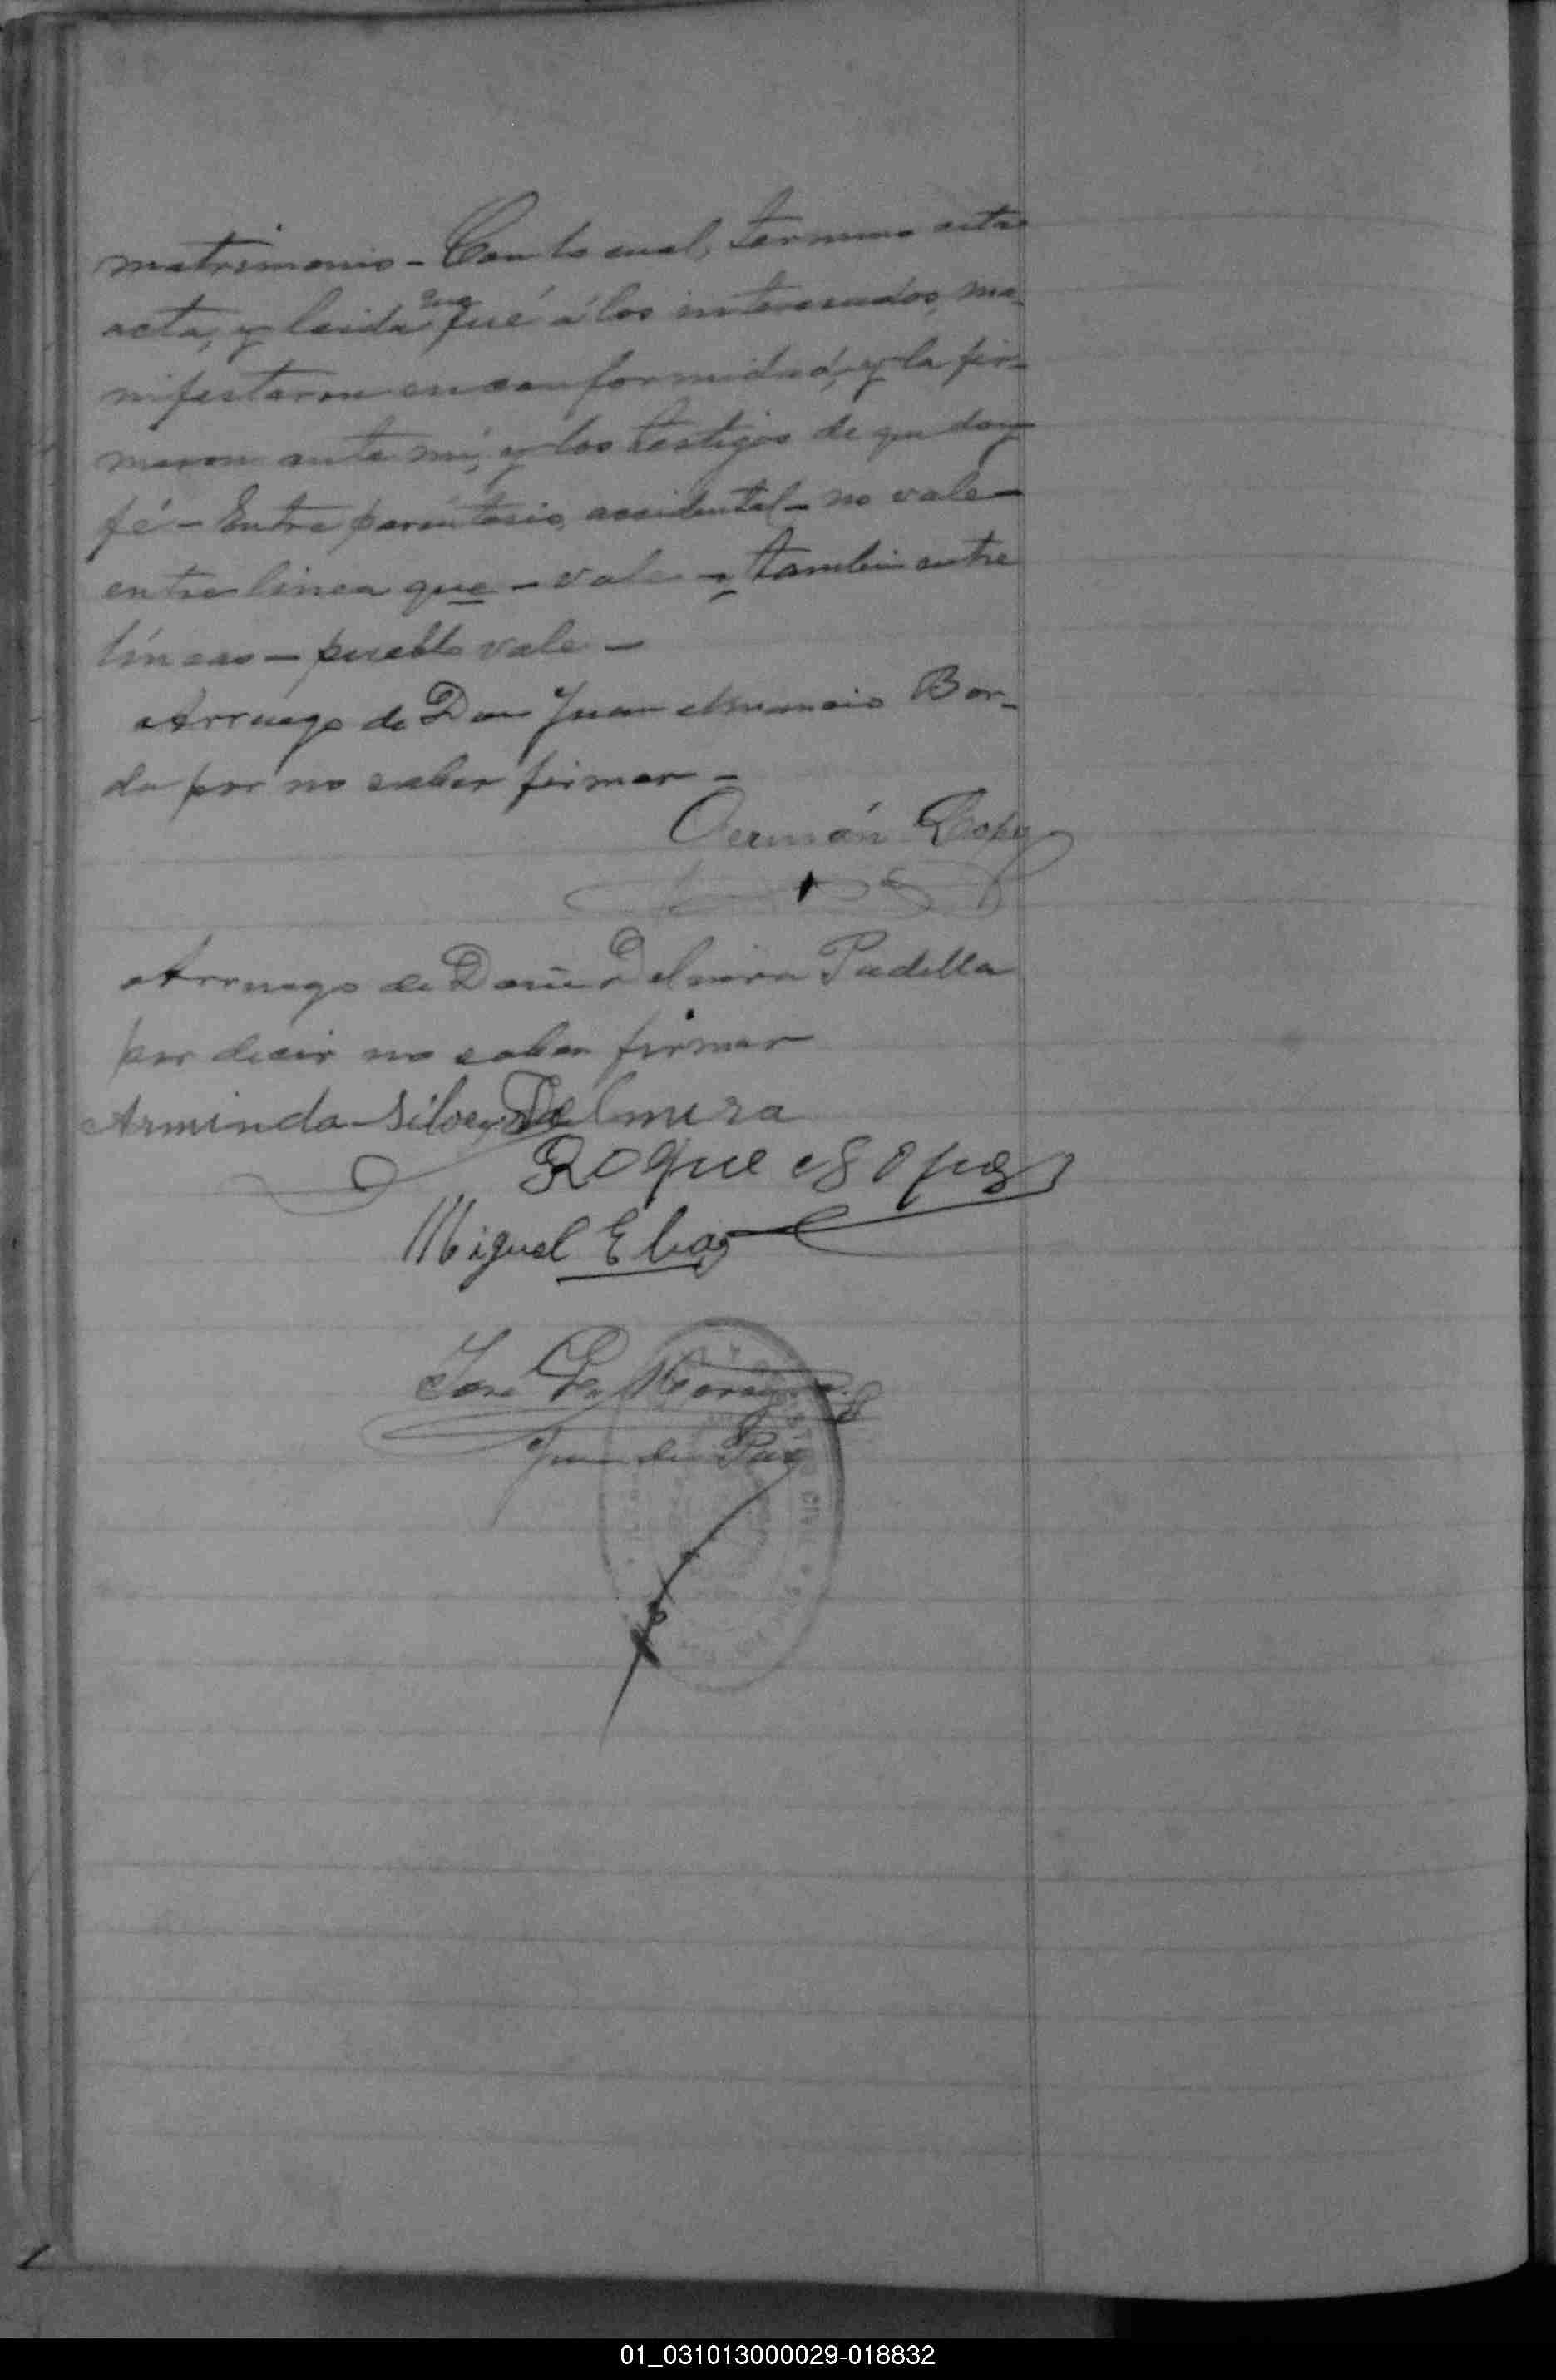 matrimonio - Con lo cual, termino esta
acta, y leida que fué á los interesados, ma-
nifestaron en conformidad, y la fir-
maron ante mí, y los testigos de que doy
fé - Entre paréntesis, accidental - no vale -
entre linea que - vale - y tambien entre
líneas - pueblo vale -
Arruego de Don Juan Bor-
da por no saber firmar -
Germán
Arruego de Doña Delmira Padilla
por decir no saber firmar
Arminda Delmira
Roque Lopes
Miguel Elias
José
Juez de Paz
CIVIL
01_031013000029-018832